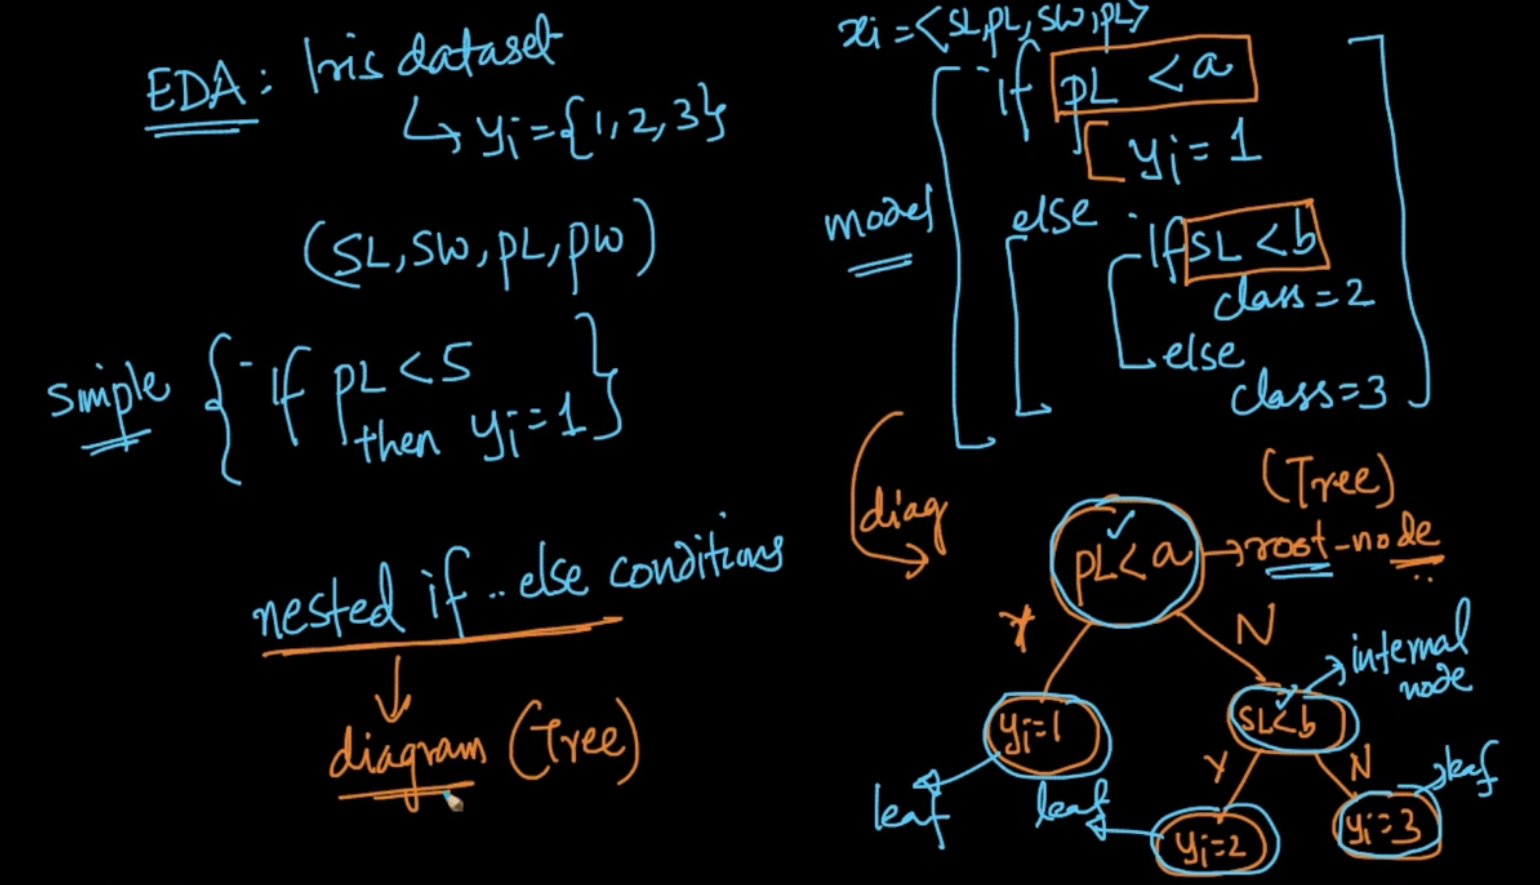 EDA: Iris dataset
↳ yi={1,2,3}
(SL,SW,PL,PW)
Simple { if PL<5
then yi=1 }
nested if..else conditions
↓
diagram (Tree)
xi=<SL,PL,SW,PL>
model
if PL <a
yi=1
else
if SL <b
class=2
else
class=3
diag
(Tree)
PL<a → root-node
Y N
yi=1
SL<b → internal
node
leaf
Y N
leaf
yi=2
yi=3
leaf